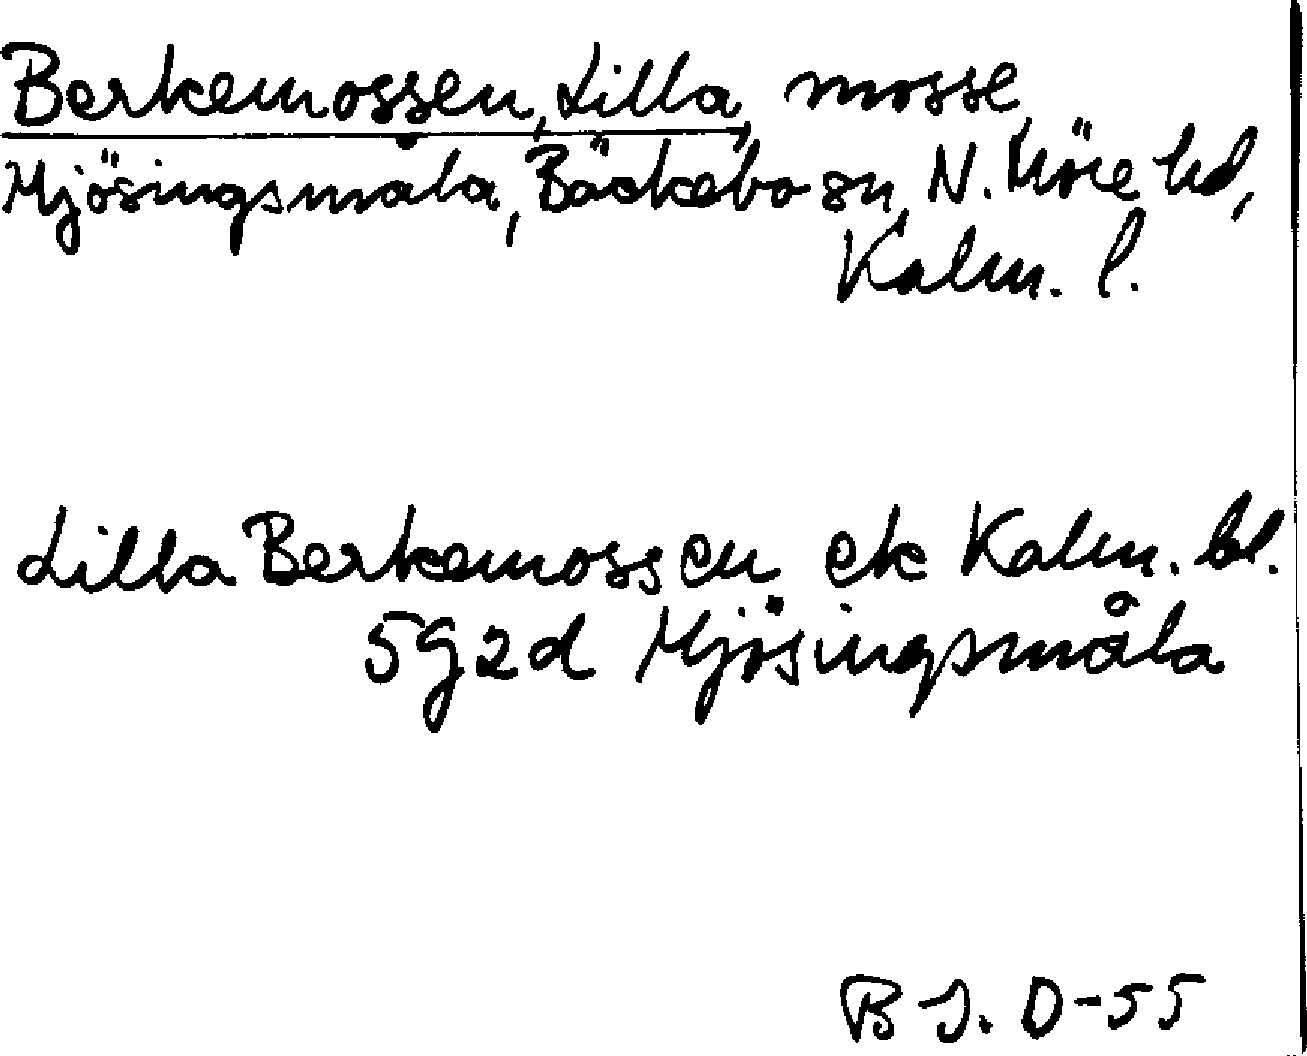 Berkemossen, Lilla, mosse
Mjösingsmåla, Bäckebo sn, N. Möre hd,
Kalm. l.
Lilla Berkemossen ek Kalm. bl.
5g2d Mjösingsmåla
B-J. D-55